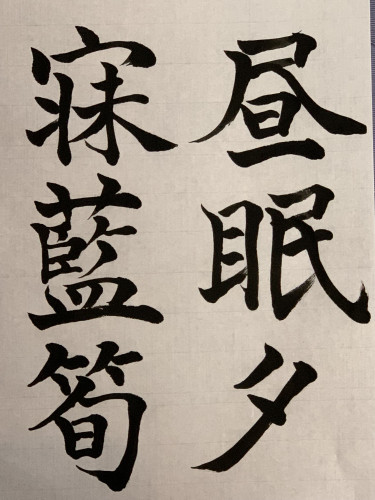 昼眠夕
寐藍筍